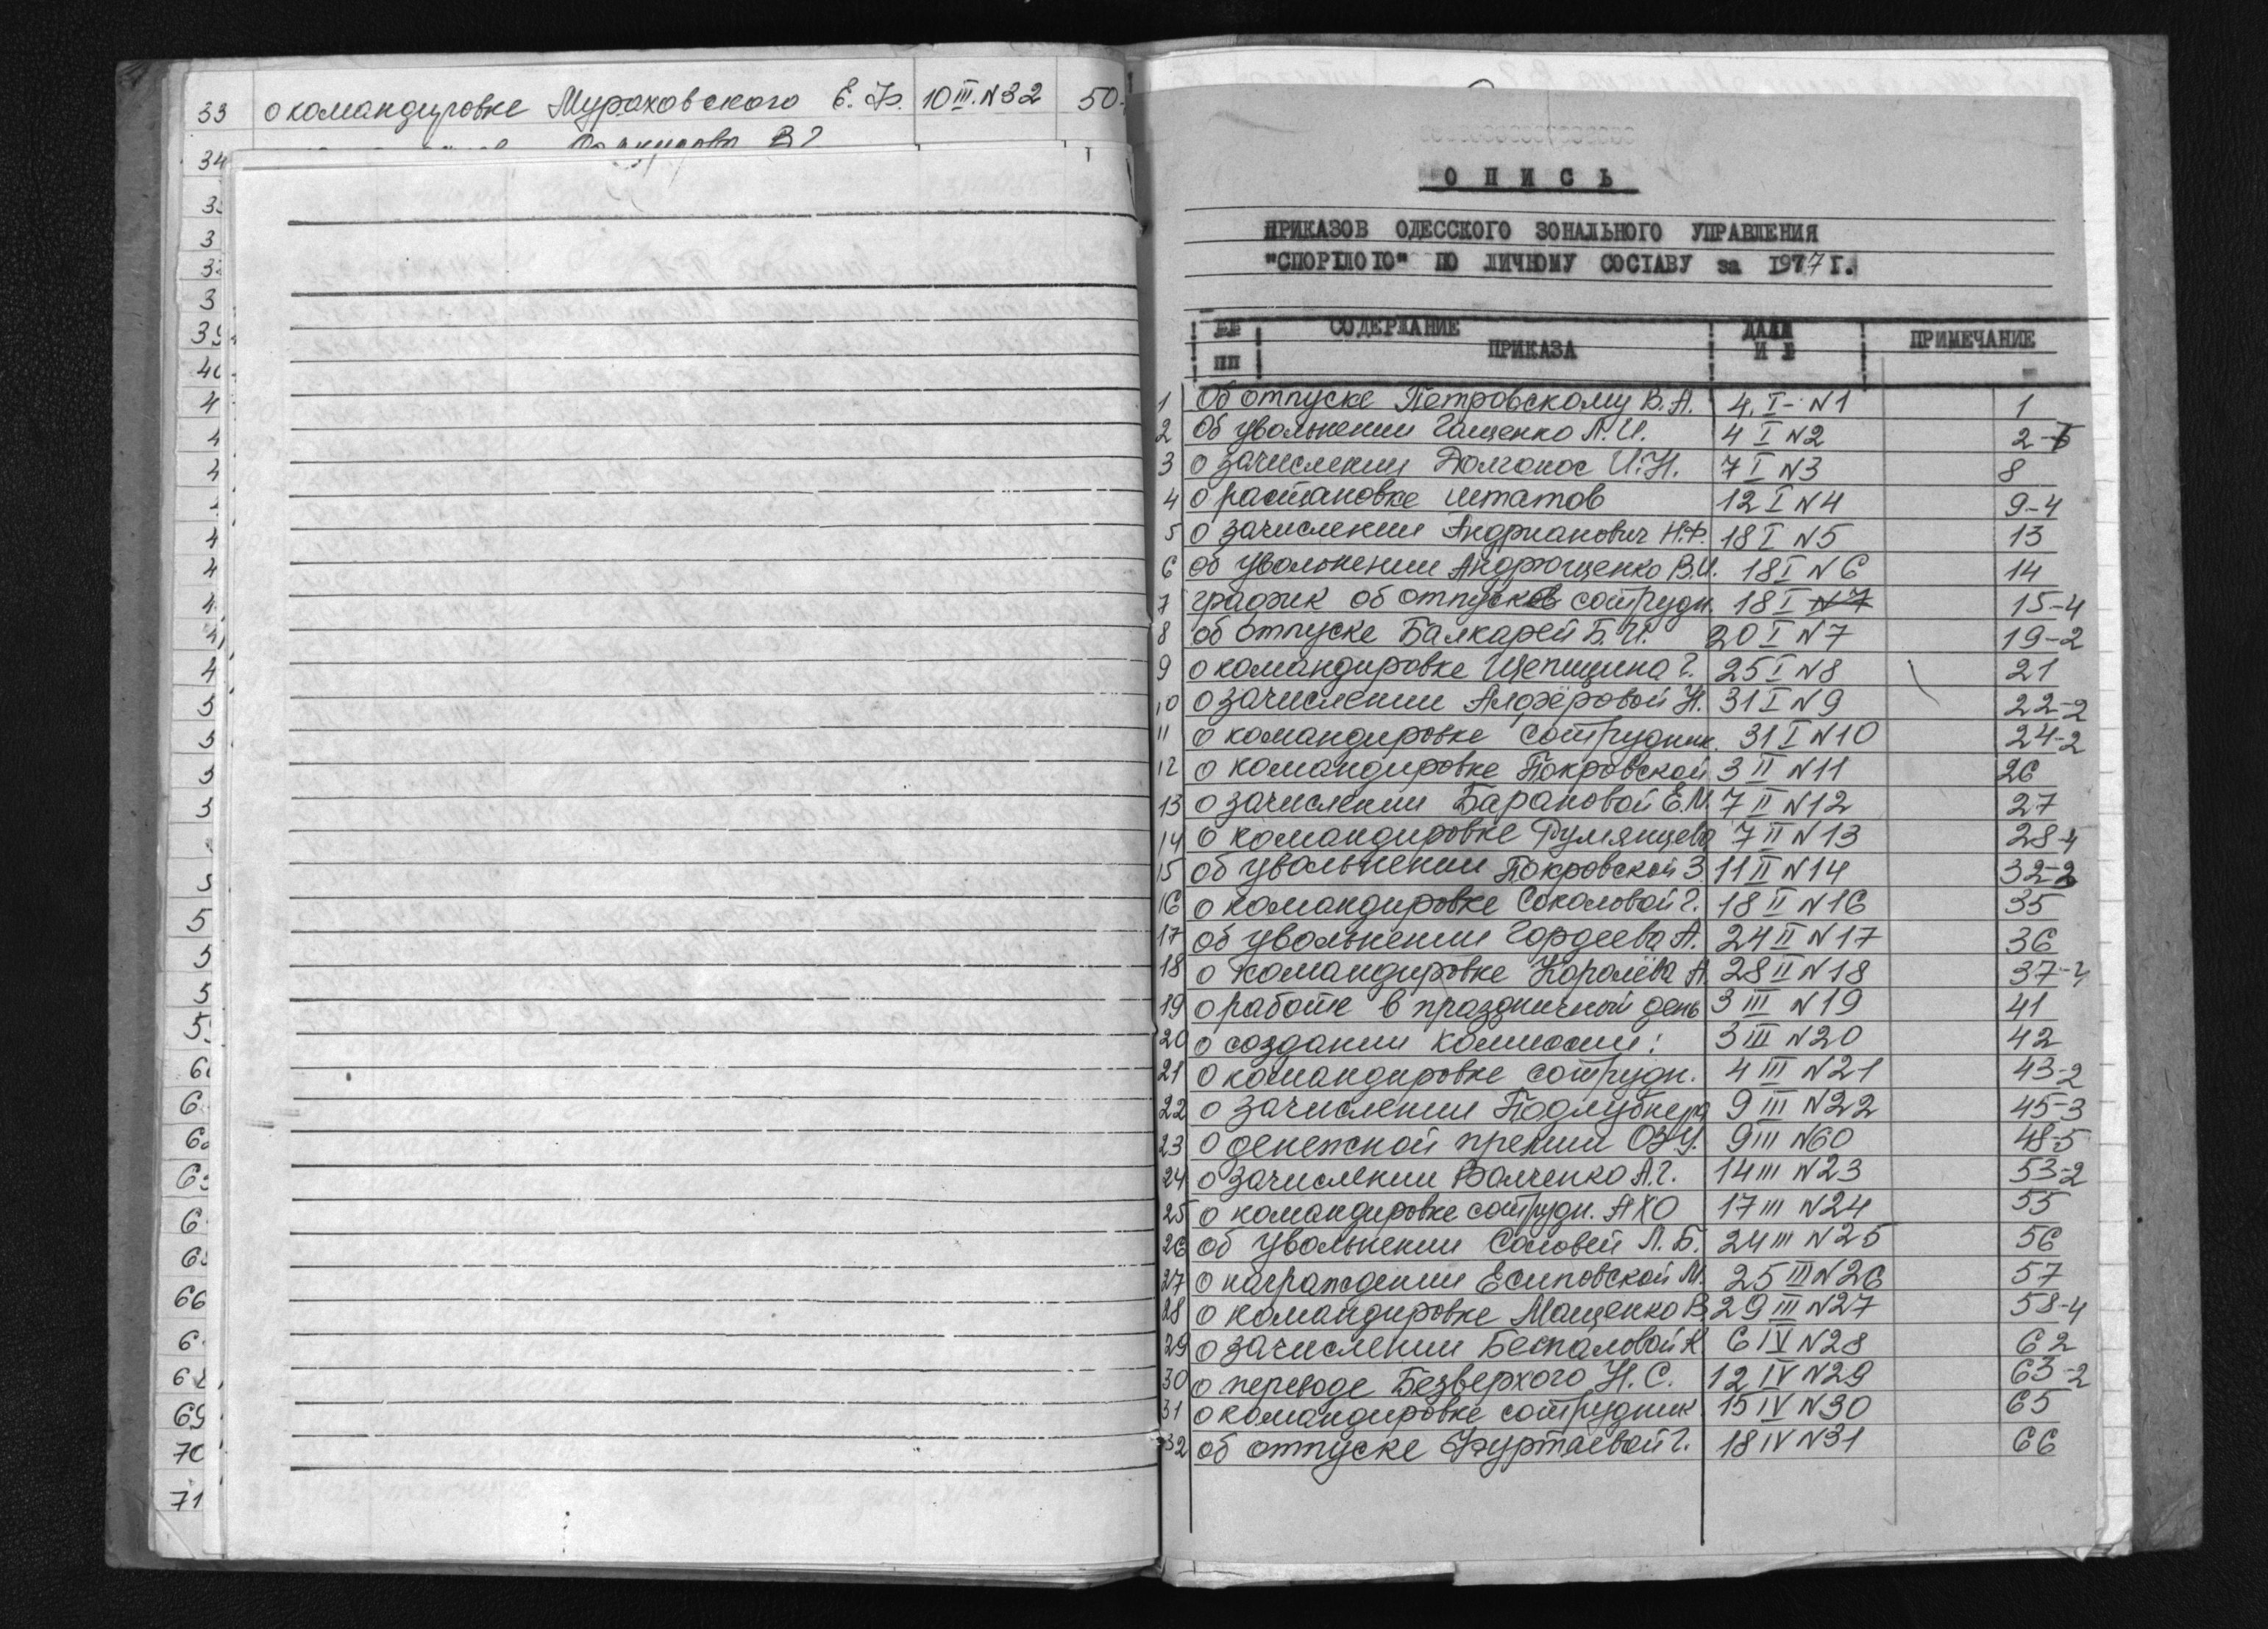 33 о командировке Мураховского Е. Ф. 10 III. N32 50-
34
39
40
66
69
70
71
О П И С Ь
ПРИКАЗОВ ОДЕССКОГО ЗОНАЛЬНОГО УПРАВЛЕНИЯ
"СПОРТЛОТО" ПО ЛИЧНОМУ СОСТАВУ за 1977 г.
№№ СОДЕРЖАНИЕ ДАТА ПРИМЕЧАНИЕ
пп ПРИКАЗА И №
1 Об отпуске Петровскому В.А. 4. I - N1 1
2 Об увольнении Гащенко Л.И. 4 I N2 2-
3 о зачислении Долгонос И.Н. 7 I N3 8
4 о растановке штатов 12 I N4 9-4
5 о зачислении Андрианович Н.Ф. 18 I N5 13
6 об увольнении Андрющенко В.И. 18 I N6 14
7 график об отпусков сотрудн. 18 I N7 15-4
8 об отпуске Балкарей Б.И. 20 I N7 19-2
9 о командировке Щепицина Г. 25 I N8 21
10 о зачислении Алфёровой Н. 31 I N9 22-2
11 о командировке сотрудник. 31 I N10 24-2
12 о командировке Покровской 3 II N11 26
13 о зачислении Барановой Е.М. 7 II N12 27
14 о командировке Румянцева 7 II N13 28-4
15 об увольнении Покровской З 11 II N14 32-2
16 о командировке Соколовой Г. 18 II N16 35
17 об увольнении Гордеева А. 24 II N17 36
18 о командировке Королёва А 28 II N18 37-4
19 о работе в праздничный день 3 III N19 41
20 о создании комиссии: 3 III N20 42
21 о командировке сотрудн. 4 III N21 43-2
22 о зачислении 9 III N22 45-3
23 о денежной премии ОЗУ. 9 III N60 48-5
24 о зачислении Волченко А.Г. 14 III N23 53-2
25 о командировке сотрудн. АХО 17 III N24 55
26 об увольнении Соловей Л.Б. 24 III N25 56
27 о награждении Есиповской М. 25 III N26 57
28 о командировке Мащенко В 29 III N27 58-4
29 о зачислении Беспаловой Н. 6 IV N28 62
30 о переводе Безверхого Н.С. 12 IV N29 63-2
31 о командировке сотрудник 15 IV N30 65
32 об отпуске Фуртаевой Г. 18 IV N31 66